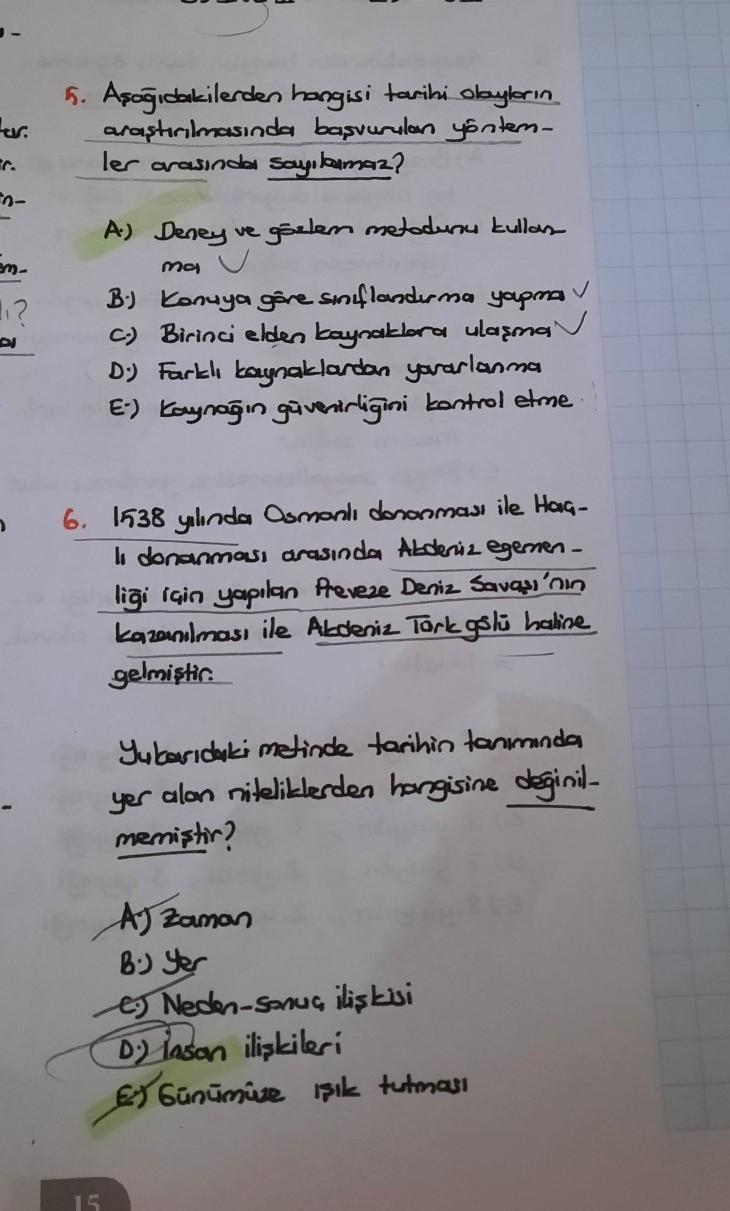 5. Aşağıdakilerden hangisi tarihi olayların
araştırılmasında başvurulan yöntem-
ler arasında sayılamaz?
A.) Deney ve gözlem metodunu kullan
ma
B.) Konuya göre sınıflandırma yapma
C.) Birinci elden kaynaklara ulaşma
D.) Farklı kaynaklardan yararlanma
E.) Kaynağın güvenirliğini kontrol etme
6. 1538 yılında Osmanlı donanması ile Haç-
lı donanması arasında Akdeniz egemen-
liği için yapılan Preveze Deniz Savaşı'nın
kazanılması ile Akdeniz Türk gölü haline
gelmiştir.
Yukarıdaki metinde tarihin tanımında
yer alan niteliklerden hangisine değinil-
memiştir?
A.) Zaman
B.) Yer
C.) Neden-sonuç ilişkisi
D.) İnsan ilişkileri
E.) Günümüze ışık tutması
15